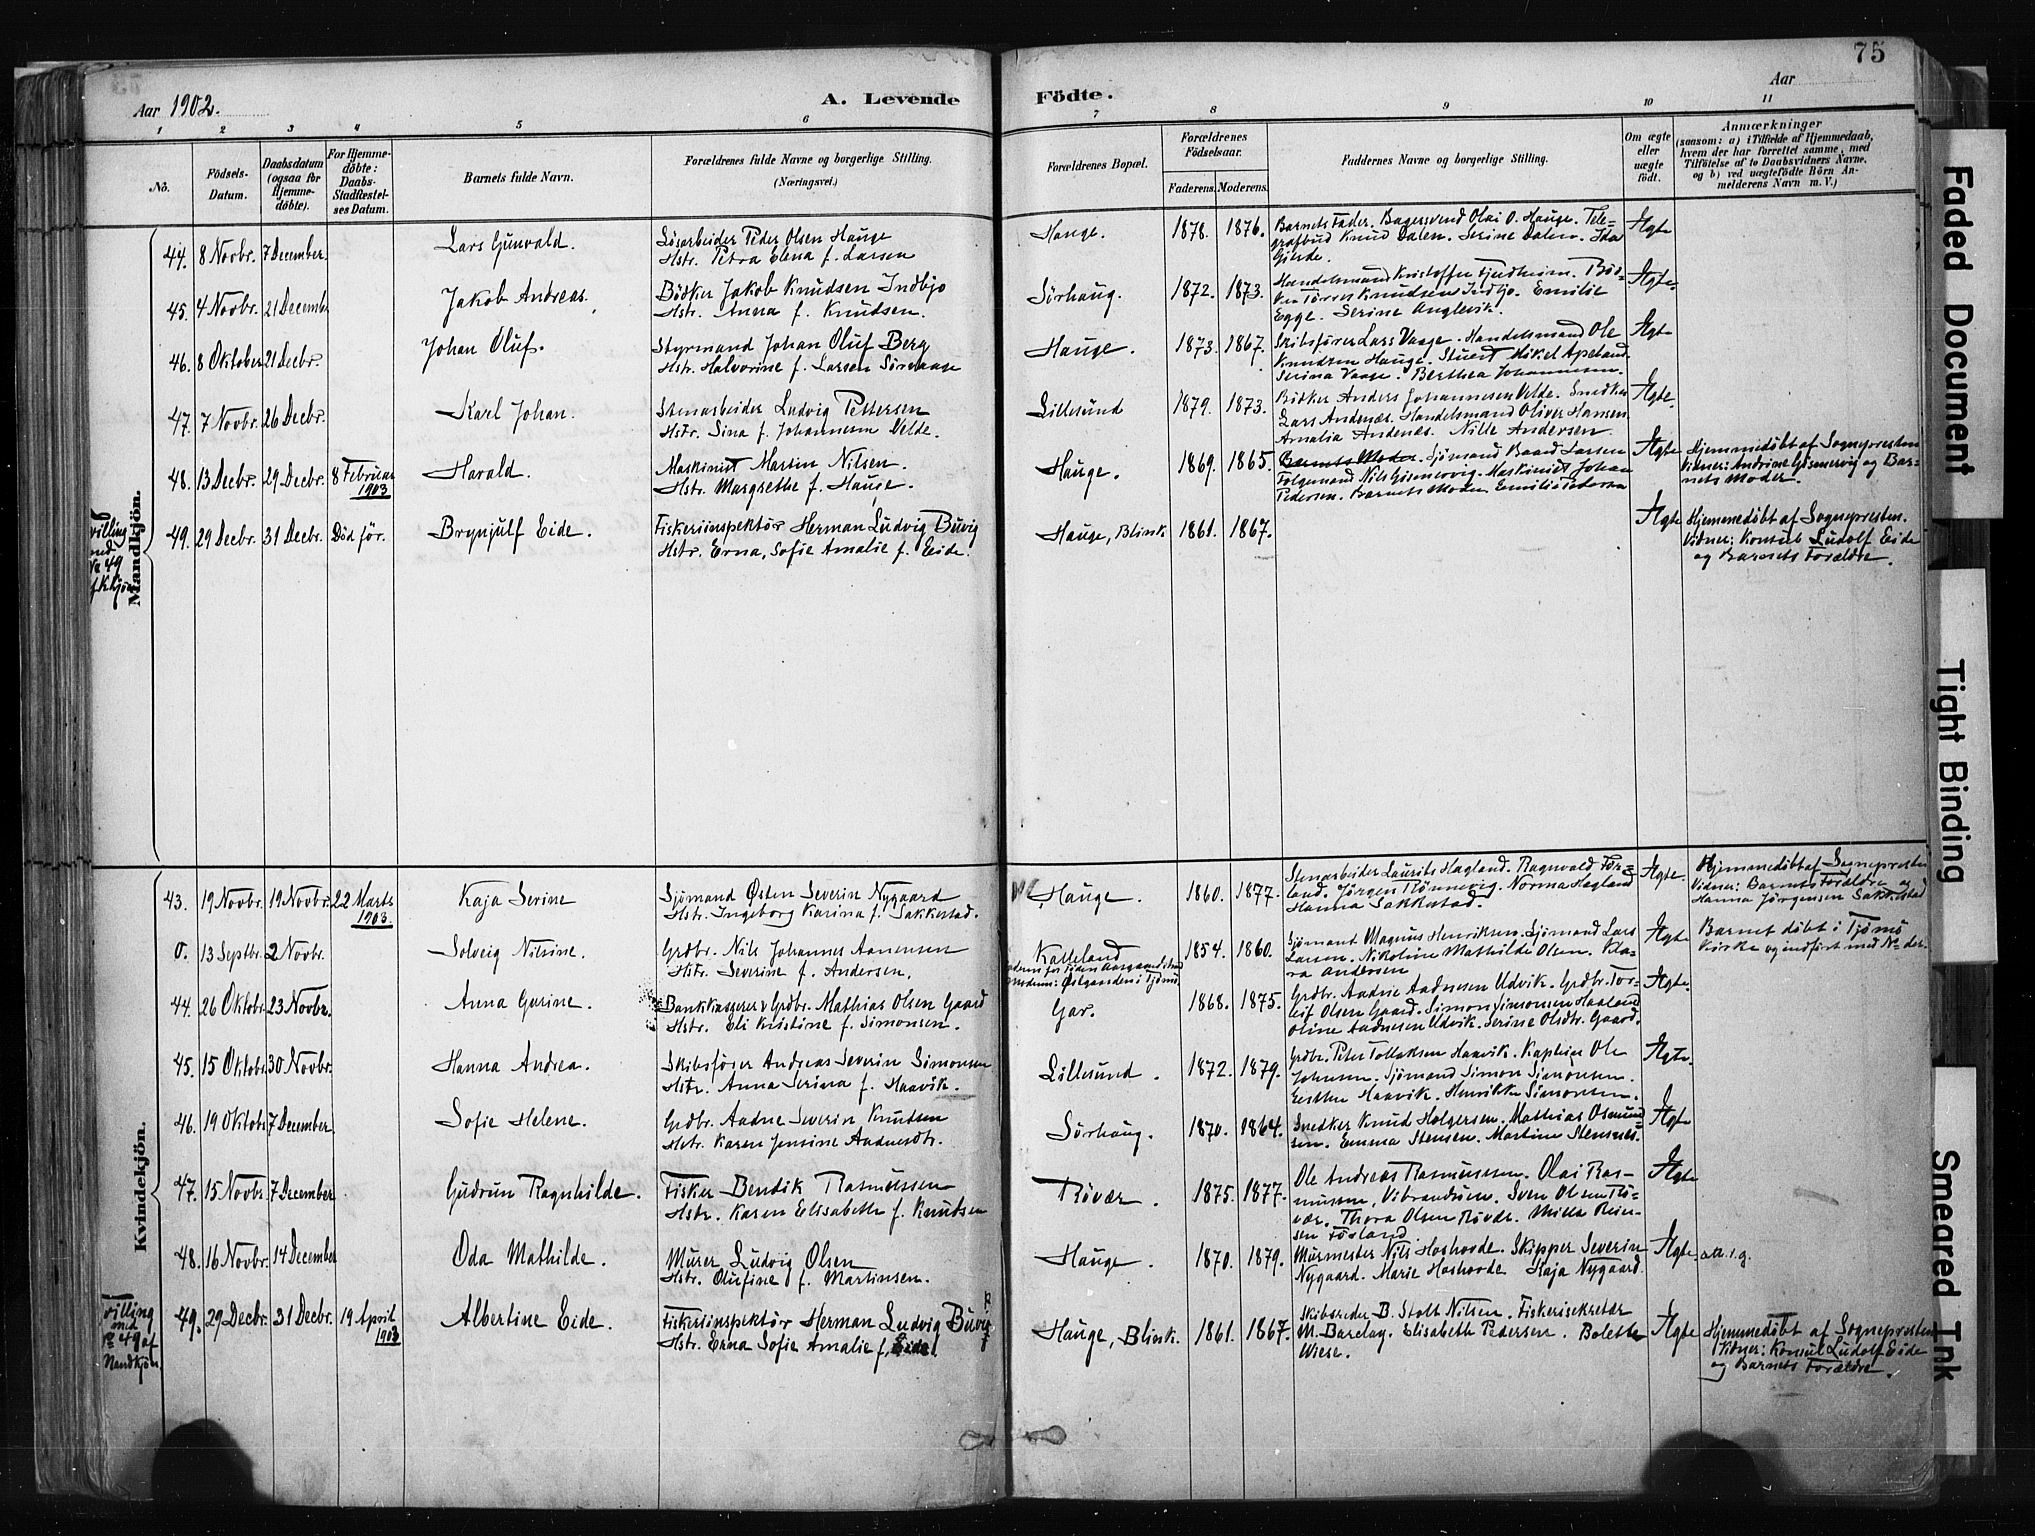 75
Aar 1902.
A. Levende
Födte.
Aar
1 2 3 4 5 6 7 8 9 10 11
No.
Födsels-Datum.
Daabsdatum (ogsaa for Hjemme-döbte).
For Hjemme-döbte: Daabs-Stadfæstel-ses Datum.
Barnets fulde Navn.
Forældrenes fulde Navne og borgerlige Stilling.
(Næringsvei.)
Forældrenes Bopæl.
Forældrenes Födselsaar.
Faderens. Moderens.
Faddernes Navne og borgerlige Stilling.
Om ægte eller uægte födt.
Anmærkninger
(saasom: a) i Tilfælde af Hjemmedaab, hvem der har forrettet samme, med Tilföielse af to Daabsvidners Navne, og b) ved uægtefödte Börn Anmelderens Navn m. V.)
Mandkjön.
44. 8 Novbr. 7 December. Lars Gunvald. Lösarbeider Peder Olsen Hauge
Hstr. Petra Elena f. Larsen
Hauge. 1878. 1876. Barnets Fader. Bagersvend Olai O. Hauge. Tele-
grafbud Knud Dalen. Serine Dalen. Ida
Gjerde.
Ægte
45. 4 Novbr. 21 Decembr Jakob Andreas. Bödker Jakob Knudsen Indbjo
Hstr. Anna f. Knudsen.
Sörhaug. 1872. 1873. Handelsmand Kristoffer Fjeldheim. Böd-
ker Törres Knudsen Indbjo. Emilie
Egge. Serine Anglevik.
Ægte.
46. 8 Oktober 21 Decbr. Johan Oluf. Styrmand Johan Oluf Berg
Hstr. Halvorine f. Larsen Sörvaage
Hauge. 1873. 1867. Skibsförer Lars Vaage. Handelsmand Ole
Knudsen Hauge. Stuert Mikel Apeland.
Serina Vaage. Berthea Johannesen.
Ægte
47. 7 Novbr. 26 Decbr. Karl Johan. Stenarbeider Ludvig Pettersen
Hstr. Sina f. Johannesen Velde.
Lillesund 1879. 1873. Bödker Anders Johannesen Velde. Snedker
Lars Andenæs. Handelsmand Oliver Hansen
Amalia Andenæs. Nille Andersen.
Ægte.
48. 13 Decbr. 29 Decbr. 8 Februar 1903 Harald. Maskinist Martin Nilsen.
Hstr. Margrethe f. Hauge.
Hauge. 1869. 1865. Barnets Moder. Sjömand Baard Larsen
Nils Gismervig. Maskinist Johan
Pedersen. Barnets Moder Emilie Pedersen
Ægte Hjemmedöbt af Sognepresten
Vidner: Andrine Gismervig og Bar-
nets Moder.
Tvilling med No 49 af Kvkjön
49. 29 Decbr. 31 Decbr. Död för. Brynjulf Eide. Fiskeriinspektör Herman Ludvig Buvig
Hstr. Erna, Sofie Amalie f. Eide.
Hauge, Blink 1861. 1867. Ægte Hjemmedöbt af Sognepresten.
Vidner: Konsul Ludolf Eide
og Barnets Forældre.
Kvindekjön.
43. 19 Novbr. 19 Novbr. 22 Marts 1903. Kaja Serine Sjömand Østen Severin Nygaard
Hstr. Ingeborg Karina f. Sakkestad.
Hauge. 1860. 1877. Stenarbeider Laurits Hagland. Ragnvald För-
land. Jörgen Rönnevig. Norma Hagland
Hanna Sakkestad.
Ægte. Hjemmedöbt af Sognepresten
Vidner: Barnets Forældre og
Hanna Jörgensen Sakkestad
0. 13 Septbr. 2 Novbr. Solveig Nilsine. Grdbr. Nils Johannes Aanensen
Hstr. Severine f. Andersen.
Kalleland
1854. 1860. Sjömand Magnus Henriksen. Sjömand Lars
Larsen. Nikoline Mathilde Olsen. Kla-
ra Andersen
Ægte Barnet döbt i Tjömö
Kirke og indfört med No der.
44. 26 Oktobr. 23 Novbr. Anna Gurine. Bankkasserer & Grdbr. Mathias Olsen Gaard
Hstr. Eli Kristine f. Simonsen.
Gar. 1868. 1875. Grdbr. Aadne Aadnesen Udvik. Grdbr. Tor-
leif Olsen Gaard. Simon Simonsen Haaland
Oline Aadnesen Udvik. Serine Olsdtr. Gaard.
Ægte.
45. 15 Oktobr. 30 Novbr. Hanna Andrea. Skibsförer Andreas Severin Simonsen
Hstr. Anna Serina f. Haavik.
Lillesund. 1872. 1879. Grdbr. Peter Tollaksen Haavik. Kaptein Ole
Johnsen. Sjömand Simon Simonsen.
Haavik. Henrikke Simonsen.
Ægte.
46. 19 Oktobr. 7 December Sofie Helene. Grdbr. Aadne Severin Knudsen
Hstr. Karen Jensine Aadnesdtr.
Sörhaug. 1870. 1864. Snedker Knud Holgersen. Mathias Osmund
sen. Emma Stensen. Martine Stensnes.
Ægte
47. 15 Novbr. 7 December Gudrun Ragnhilde. Fisker Bendik Rasmussen
Hstr. Karen Elisabeth f. Knudsen
Rövær. 1875. 1877. Ole Andreas Rasmussen. Olai Ras-
mussen. Vibrandsöen. Sven Olsen Rö-
vær. Thora Olsen Rövær. Milla Reier-
sen Fosland
Ægte
48. 16 Novbr. 14 December Oda Mathilde. Murer Ludvig Olsen
Hstr. Olufine f. Martinsen.
Hauge. 1870. 1879. Murmester Nils Hoshovde. Skipper Severin
Nygaard. Marie Hoshovde Kaja Nygaard
Ægte.
Tvilling med No 49 af Mandkjön
49. 29 Decbr. 31 Decbr. 19 April 1903 Albertine Eide. Fiskeriinspektör Herman Ludvig Buvig
Hstr. Erna Sofie Amalie f. Eide.
Hauge, Blink. 1861. 1867. Skibsreder B. Stolt Nilsen. Fiskerisekretær
M. Barclay. Elisabeth Pedersen. Bolette
Wiese.
Ægte Hjemmedöbt af Sognepresten
Vidner: Konsul Ludolf Eide
og Barnets Forældre.
Faded Document
Tight Binding
Smeared Ink